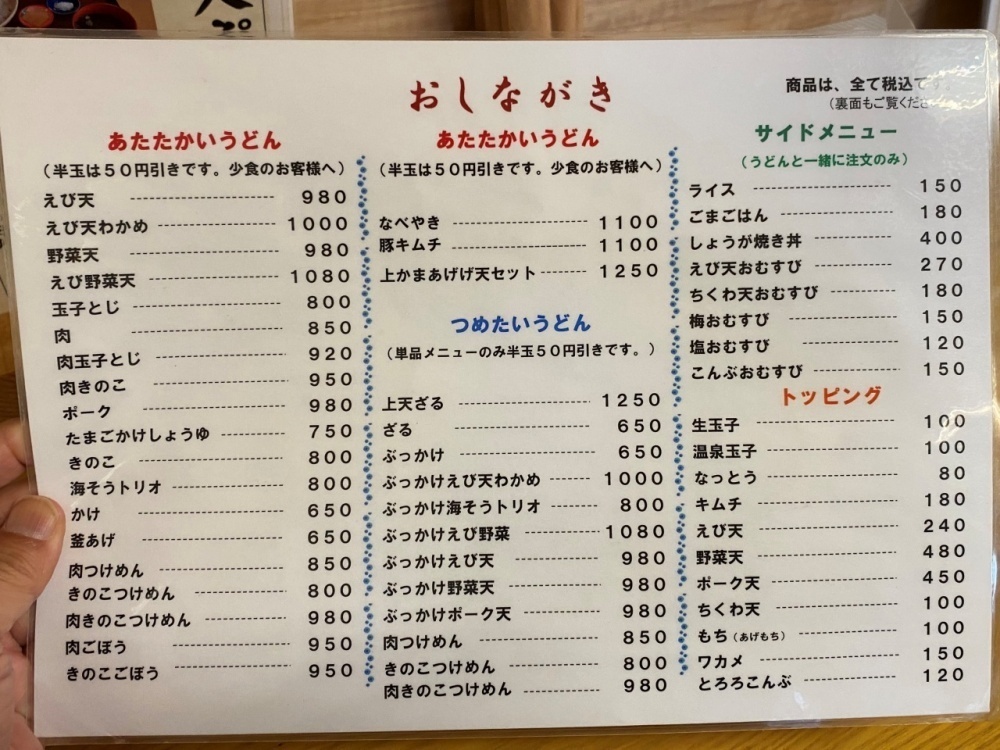 おしながき
商品は、全て税込で
（裏面もご覧くださ
あたたかいうどん
（半玉は５０円引きです。少食のお客様へ）
えび天 980
えび天わかめ 1000
野菜天 980
えび野菜天 1080
玉子とじ 800
肉 850
肉玉子とじ 920
肉きのこ 950
ポーク 980
たまごかけしょうゆ 750
きのこ 800
海そうトリオ 800
かけ 650
釜あげ 650
肉つけめん 850
きのこつけめん 800
肉きのこつけめん 980
肉ごぼう 950
きのこごぼう 950
あたたかいうどん
（半玉は５０円引きです。少食のお客様へ）
なべやき 1100
豚キムチ 1100
上かまあげげ天セット 1250
つめたいうどん
（単品メニューのみ半玉５０円引きです。）
上天ざる 1250
ざる 650
ぶっかけ 650
ぶっかけえび天わかめ 1000
ぶっかけ海そうトリオ 800
ぶっかけえび野菜 1080
ぶっかけえび天 980
ぶっかけ野菜天 980
ぶっかけポーク天 980
肉つけめん 850
きのこつけめん 800
肉きのこつけめん 980
サイドメニュー
（うどんと一緒に注文のみ）
ライス 150
ごまごはん 180
しょうが焼き丼 400
えび天おむすび 270
ちくわ天おむすび 180
梅おむすび 150
塩おむすび 120
こんぶおむすび 150
トッピング
生玉子 100
温泉玉子 100
なっとう 80
キムチ 180
えび天 240
野菜天 480
ポーク天 450
ちくわ天 100
もち（あげもち） 100
ワカメ 150
とろろこんぶ 120